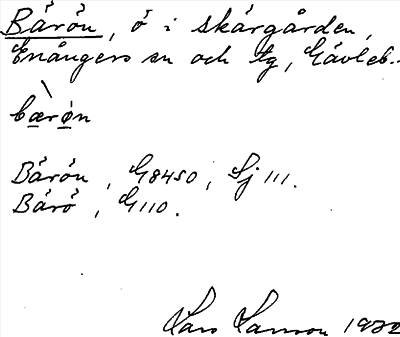 Bärön, ö i skärgården,
Enångers sn och tg, Gävleb..
bærøn
Bärön, G8450, Sj 111.
Bärö, G110.
Lars Larsson 1922